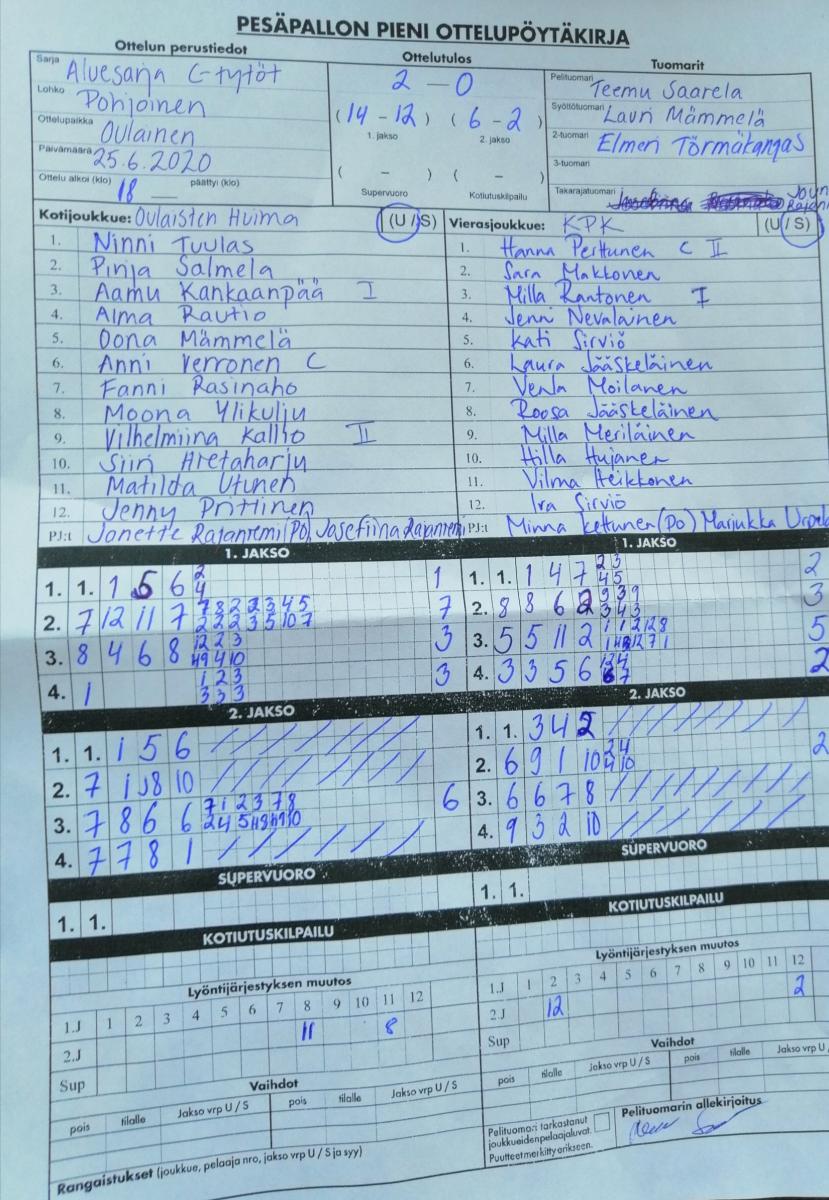 PESÄPALLON PIENI OTTELUPÖYTÄKIRJA
Ottelun perustiedot
Sarja Aluesarja C-tytöt
Lohko Pohjoinen
Ottelupaikka Oulainen
Päivämäärä 25.6.2020
Ottelu alkoi (klo) 18 päättyi (klo)
Ottelutulos
2 - 0
(14 - 12) (6 - 2)
1. jakso 2. jakso
( - ) ( - )
Supervuoro Kotiutuskilpailu
Tuomarit
Pelituomari Teemu Saarela
Syöttötuomari Lauri Mämmelä
2-tuomari Elmeri Törmäkangas
3-tuomari
Takarajatuomari
Kotijoukkue: Oulaisten Huima (U / S)
1. Ninni Tuulas
2. Pinja Salmela
3. Aamu Kankaanpää I
4. Alma Rautio
5. Oona Mämmelä
6. Anni Verronen C
7. Fanni Rasinaho
8. Moona Ylikulju
9. Vilhelmiina Kallio II
10. Siiri
11. Matilda Utunen
12. Jenny Prittinen
PJ:t Jonette Rajaniemi (PO) Josefiina Rajaniemi
Vierasjoukkue: KPK (U / S)
1. Hanna Perttunen C II
2. Sara Makkonen
3. Milla Rantonen I
4. Jenni Nevalainen
5. Kati Sirviö
6. Laura Jääskeläinen
7. Venla Moilanen
8. Roosa Jääskeläinen
9. Milla Meriläinen
10. Hilla Hujanen
11. Vilma Heikkonen
12. Ira Sirviö
PJ:t Minna Kettunen (PO) Marjukka
1. JAKSO
1. 1. 1 5 6 2 1
4
2. 7 12 11 7 7 8 2 2 3 4 5 7
2 2 2 3 5 10 7
3. 8 4 6 8 12 2 3 3
4 10
4. 1 1 2 3 3
3 3 3
2. JAKSO
1. 1. 1 5 6
2. 7 1 8 10
3. 7 8 6 6 7 1 2 3 7 8 6
2 4 5
4. 7 7 8 1
SUPERVUORO
1. 1.
KOTIUTUSKILPAILU
Lyöntijärjestyksen muutos
1.J 1 2 3 4 5 6 7 8 9 10 11 12
11 8
2.J
Sup
Vaihdot
pois tilalle Jakso vrp U / S pois tilalle Jakso vrp U / S
Rangaistukset (joukkue, pelaaja nro, jakso vrp U / S ja syy)
1. JAKSO
1. 1. 1 4 7 2 3 2
4 5
2. 8 8 6 2 9 3 9 3
3 4 3
3. 5 5 11 2 5
4. 3 3 5 6 2
6 7
2. JAKSO
1. 1. 3 4 2
2. 6 9 1 10 2 4 2
4 10
3. 6 6 7 8
4. 9 3 2 10
SUPERVUORO
1. 1.
KOTIUTUSKILPAILU
Lyöntijärjestyksen muutos
1.J 1 2 3 4 5 6 7 8 9 10 11 12
2.J 12 2
Sup
Vaihdot
pois tilalle Jakso vrp U / S pois tilalle Jakso vrp U
Pelituomari tarkastanut
joukkueiden pelaajaluvat.
Puutteet merkitty erikseen.
Pelituomarin allekirjoitus